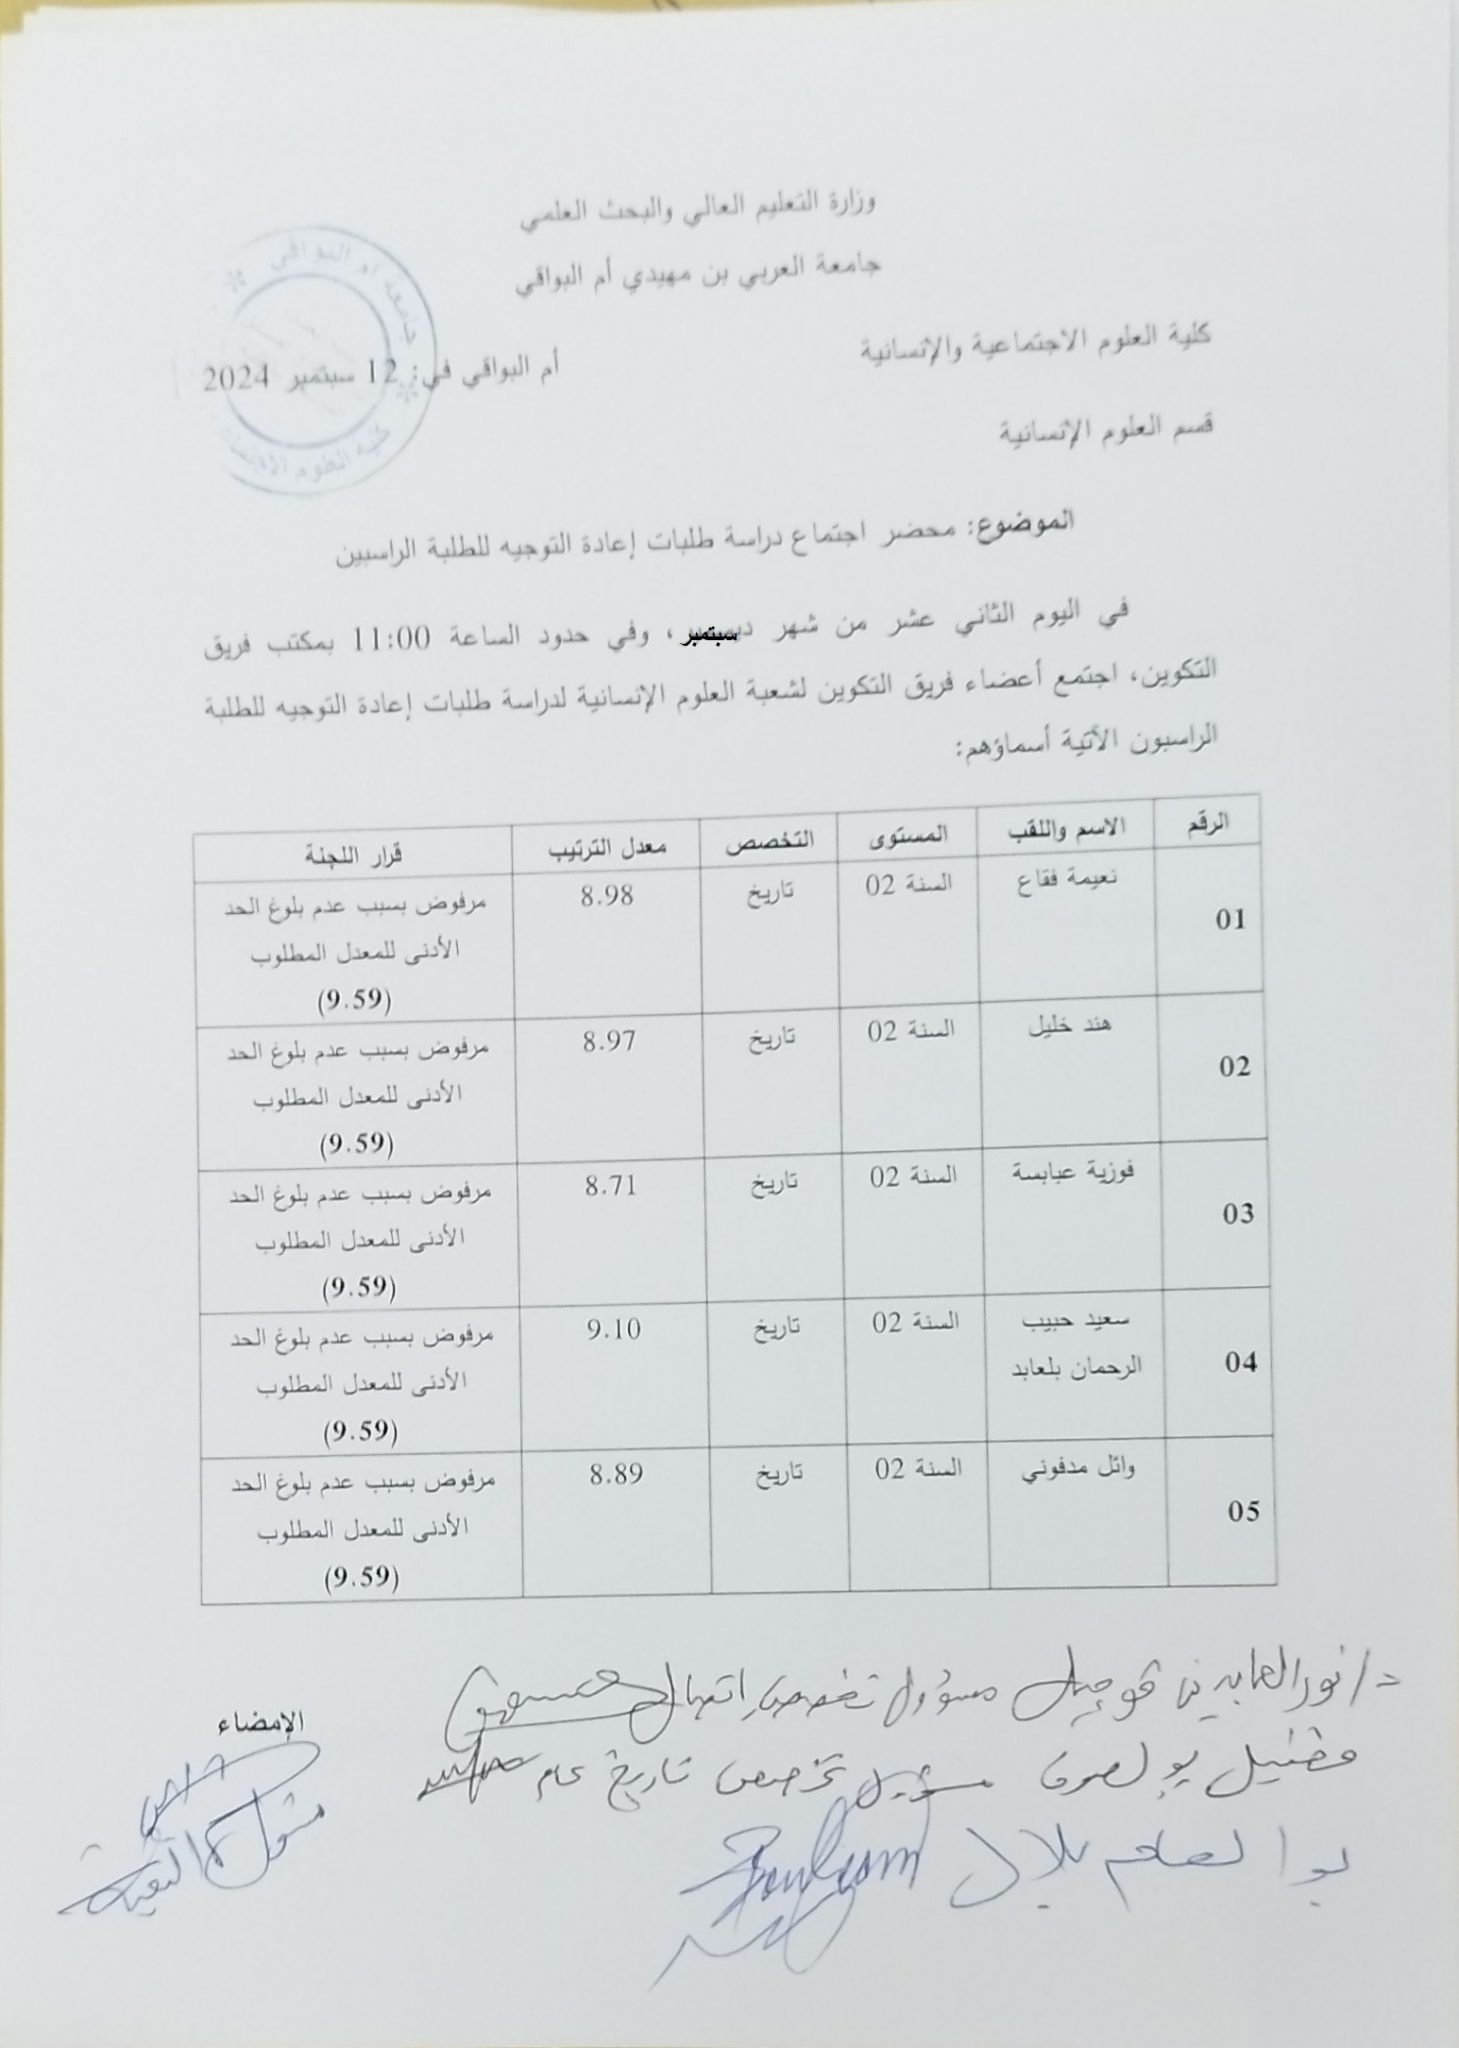 وزارة التعليم العالي والبحث العلمي
جامعة العربي بن مهيدي أم البواقي
جامعة أم البواقي
كلية العلوم الاجتماعية والإنسانية
أم البواقي في: 12 سبتمبر 2024
قسم العلوم الإنسانية
الموضوع: محضر اجتماع دراسة طلبات إعادة التوجيه للطلبة الراسبين
في اليوم الثاني عشر من شهر سبتمبر، وفي حدود الساعة 11:00 بمكتب فريق
التكوين، اجتمع أعضاء فريق التكوين لشعبة العلوم الإنسانية لدراسة طلبات إعادة التوجيه للطلبة
الراسبون الآتية أسماؤهم:
الرقم الاسم واللقب المستوى التخصص معدل الترتيب قرار اللجنة
01 نعيمة فقاع السنة 02 تاريخ 8.98 مرفوض بسبب عدم بلوغ الحد
الأدنى للمعدل المطلوب
(9.59)
02 هند خليل السنة 02 تاريخ 8.97 مرفوض بسبب عدم بلوغ الحد
الأدنى للمعدل المطلوب
(9.59)
03 فوزية عبابسة السنة 02 تاريخ 8.71 مرفوض بسبب عدم بلوغ الحد
الأدنى للمعدل المطلوب
(9.59)
04 سعيد حبيب السنة 02 تاريخ 9.10 مرفوض بسبب عدم بلوغ الحد
الرحمان بلعابد الأدنى للمعدل المطلوب
(9.59)
05 وائل مدفوني السنة 02 تاريخ 8.89 مرفوض بسبب عدم بلوغ الحد
الأدنى للمعدل المطلوب
(9.59)
د/نور العابدين قوجيل مسؤول تخصص اتصال
الإمضاء
مسؤول تخصص تاريخ عام
بلال